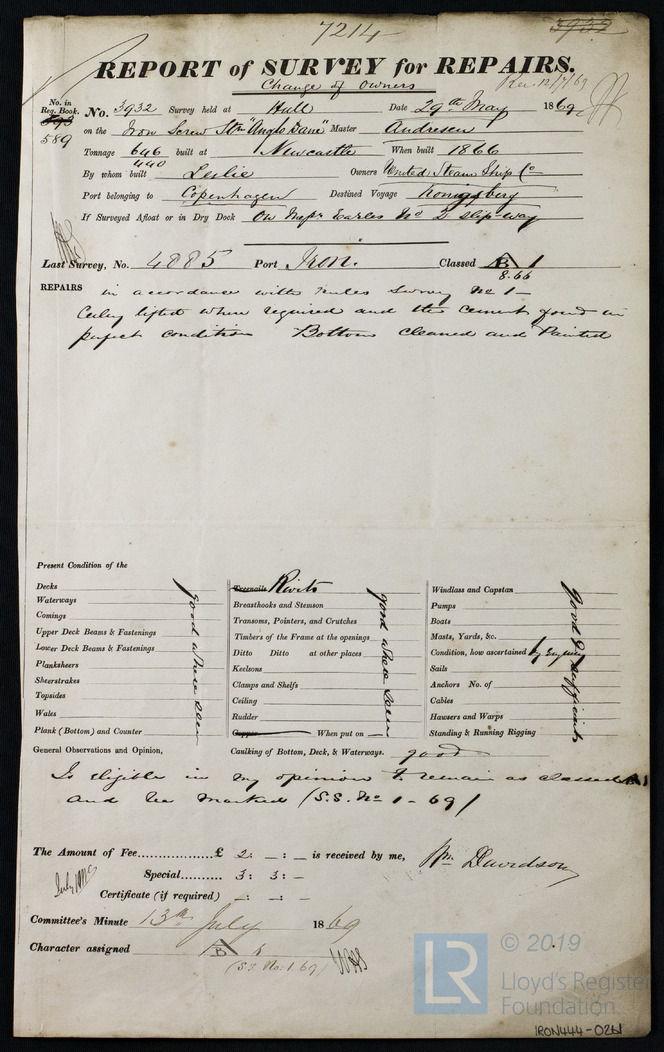 7214
3932
REPORT of SURVEY for REPAIRS.
Change of Owners
Rec. 12/7/69
No. in Reg. Book.
593
589
No. 3932 Survey held at Hull Date 29th May 1869
on the Iron Screw Str "Anglo Dane" Master Andresen
Tonnage 646 built at Newcastle When built 1866
440
By whom built Leslie Owners United Steam Ship Co
Port belonging to Copenhagen Destined Voyage Konigsberg
If Surveyed Afloat or in Dry Dock On Messrs Earles No 2 slip-way
Last Survey, No. 4085 Port Iron. Classed B 1
8.66
REPAIRS in accordance with rules Survey No 1-
Ceiling lifted where required and the cement found in
perfect condition Bottom cleaned and Painted
Present Condition of the
Decks
Waterways
Comings
Upper Deck Beams & Fastenings
Lower Deck Beams & Fastenings
Planksheers
Sheerstrakes
Topsides
Wales
Plank (Bottom) and Counter
good where seen
Treenails Rivets
Breasthooks and Stemson
Transoms, Pointers, and Crutches
Timbers of the Frame at the openings
Ditto Ditto at other places
Keelsons
Clamps and Shelfs
Ceiling
Rudder
Copper When put on
good where seen
Windlass and Capstan
Pumps
Boats
Masts, Yards, &c.
Condition, how ascertained by
Sails
Anchors No. of
Cables
Hawsers and Warps
Standing & Running Rigging
good & sufficient
General Observations and Opinion, Caulking of Bottom, Deck, & Waterways. good
Is eligible in my opinion to remain as classed A1
and be marked (S.S. No 1-69)
The Amount of Fee............... £ 2: — : — is received by me, Wm Davidson
Special......... 3: 3: —
Certificate (if required) —: — : —
Committee's Minute 13th July 1869
Character assigned B 1
(S.S. No. 1. 69)
LR © 2019
Lloyd's Register
Foundation.
IRON444-0261